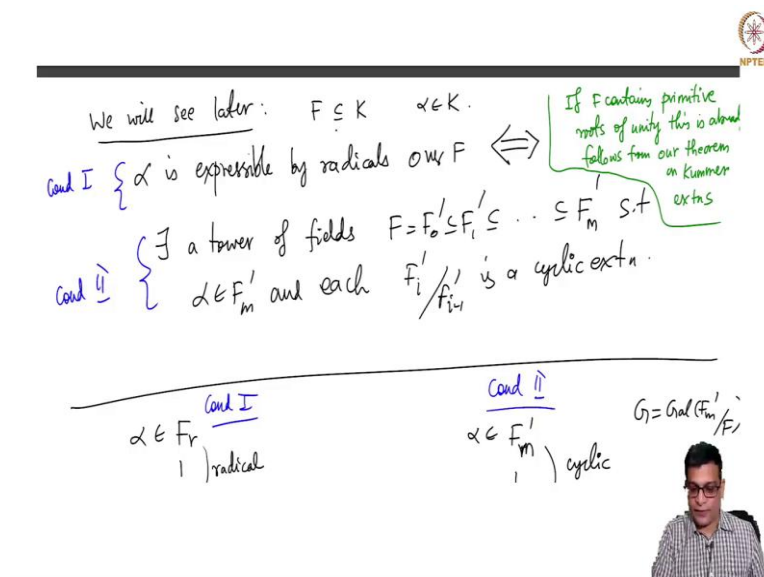 NPTEL
We will see later: F ⊆ K α ∈ K.
If F contains primitive
roots of unity this is
follows from our theorem
on Kummer
extns
cond I { α is expressible by radicals over F ⟺
cond II { ∃ a tower of fields F = F₀' ⊆ F₁' ⊆ .. ⊆ Fₘ' s.t
α ∈ Fₘ' and each Fᵢ'/Fᵢ₋₁' is a cyclic extn.
Cond I
Cond II
α ∈ Fᵣ
α ∈ Fₘ'
G = Gal(Fₘ'/F)
| ) radical
| ) cyclic